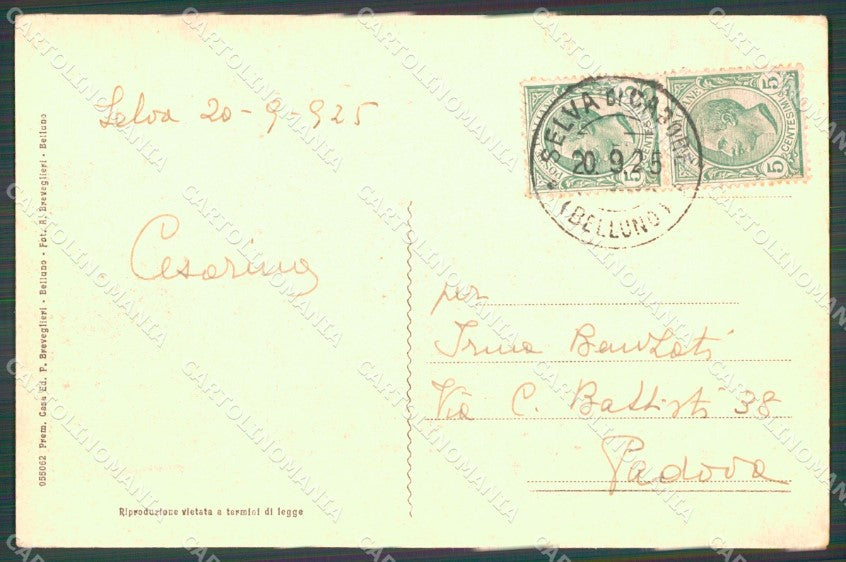 Selva 20-9-925
Cesarina
SELVA DI CADORE
20.9.25
(BELLUNO)
5 CENTESIMI 5
per
Irma
Via C. Battisti 38
Padova
955062 Prem. Casa Ed. F. Breveglieri - Belluno - Fot. R. Breveglieri - Belluno
Riproduzione vietata a termini di legge
CARTOLINOMANIA